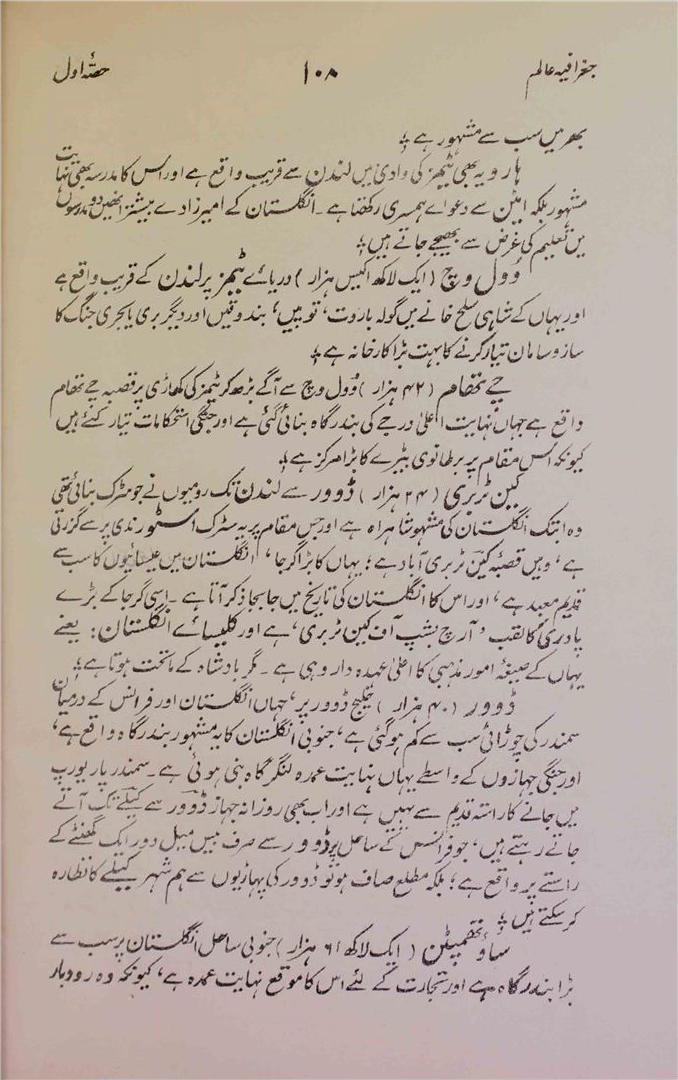 جغرافیہ عالم ۱۰۸ حصّہ اول
بھر میں سب سے مشہور ہے ؛
ہارو یہ بھی ٹیمز کی وادی میں لندن سے قریب واقع ہے اور اس کا مدرسہ بھی نہایت
مشہور بلکہ ایٹن سے دعواے ہمسری رکھتا ہے ۔ انگلستان کے امیرزادے بیشتر انھیں دو مدرسوں
میں تعلیم کی غرض سے بھیجے جاتے ہیں ؛
وُول وچ ( ایک لاکھ اکیس ہزار ) دریاے ٹیمز پر لندن کے قریب واقع ہے
اور یہاں کے شاہی سلح خانے میں گولہ باروت، توپیں، بندوقیں اور دیگر بری یا بحری جنگ کا
ساز و سامان تیار کرنے کا بہت بڑا کارخانہ ہے ؛
چے تھام ( ۴۲ ہزار ) وُول وچ سے آگے بڑھ کر ٹیمز کی کھاڑی پر قصبہ چے تھام
واقع ہے جہاں نہایت اعلیٰ درجے کی بندرگاہ بنائی گئی ہے اور جنگی استحکامات تیار کئے ہیں
کیونکہ اس مقام پر برطانوی بیڑے کا بڑا مرکز ہے ؛
کین ٹربری ( ۲۴ ہزار ) ڈوور سے لندن تک رومیوں نے جو سڑک بنائی تھی
وہ ابتک انگلستان کی مشہور شاہراہ ہے اور جس مقام پر یہ سڑک اسٹور ندی پر سے گزرتی
ہے، وہیں قصبۂ کین ٹربری آباد ہے ؛ یہاں کا بڑا گرجا، انگلستان میں عیسائیوں کا سب سے
قدیم معبد ہے، اور اس کا انگلستان کی تاریخ میں جابجا ذکر آتا ہے ۔ اسی گرجا کے بڑے
پادری کا لقب ’آرچ بشپ آف کین ٹربری‘ ہے اور کلیساے انگلستان : یعنے
یہاں کے صیغۂ امور مذہبی کا اعلیٰ عہدہ دار وہی ہے ۔ مگر بادشاہ کے ماتحت ہوتا ہے ؛
ڈوور ( ۴۰ ہزار ) خلیج ڈوور پر، جہاں انگلستان اور فرانس کے درمیان
سمندر کی چوڑائی سب سے کم ہو گئی ہے، جنوبی انگلستان کا یہ مشہور بندرگاہ واقع ہے،
اور جنگی جہازوں کے واسطے یہاں نہایت عمدہ لنگر گاہ بنی ہوئی ہے ۔ سمندر پار یورپ
میں جانے کا راستہ قدیم سے یہیں ہے اور اب بھی روزانہ جہاز ڈوور سے کیلے تک آتے
جاتے رہتے ہیں، جو فرانس کے ساحل پر ڈوور سے صرف بیس میل دور ایک گھنٹے کے
راستے پر واقع ہے ؛ بلکہ مطلع صاف ہو تو ڈوور کی پہاڑیوں سے ہم شہر کیلے کا نظارہ
کر سکتے ہیں ؛
ساؤتھمپٹن ( ایک لاکھ ۶۱ ہزار ) جنوبی ساحل انگلستان پر سب سے
بڑا بندرگاہ ہے اور تجارت کے لئے اس کا موقع نہایت عمدہ ہے، کیونکہ وہ رودبار